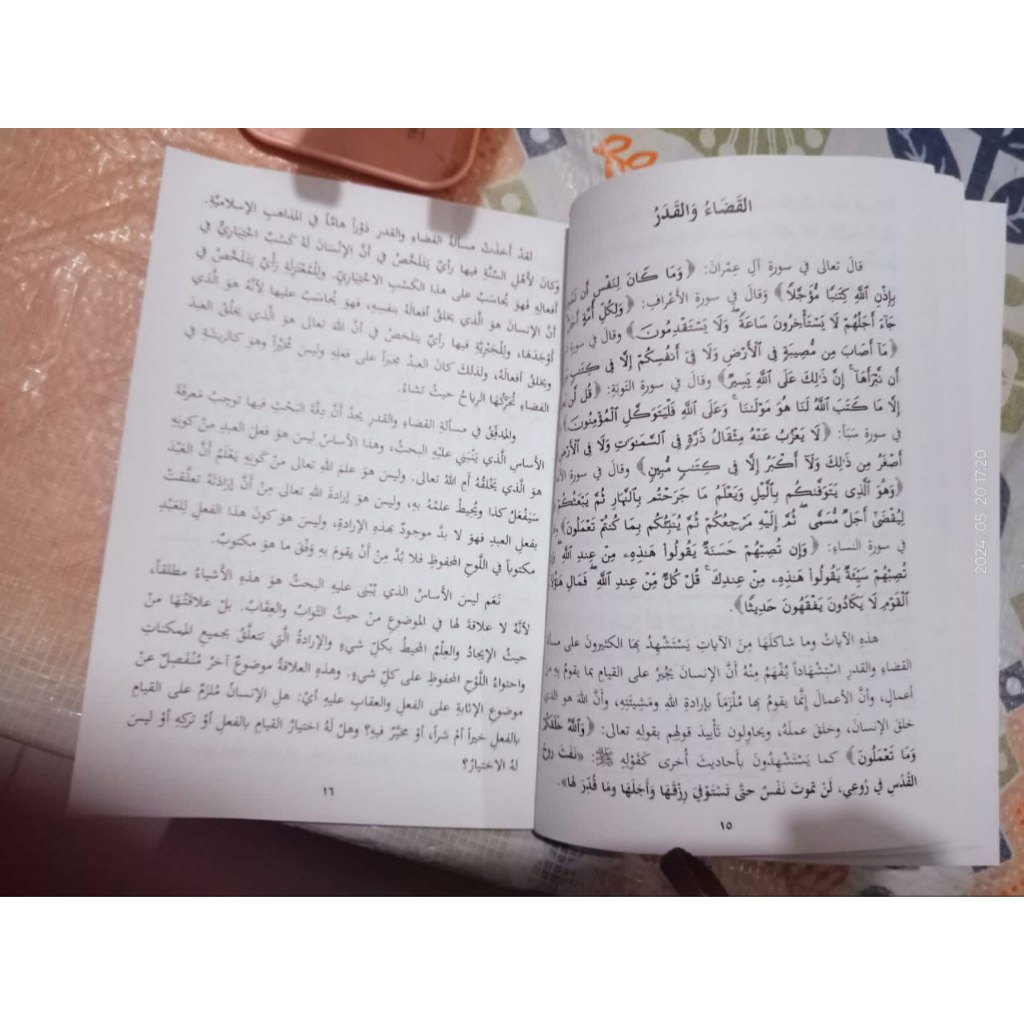 القَضَاءُ وَالقَدَرُ
قالَ تعالى في سورةِ آلِ عِمْرانَ: ﴿وَمَا كَانَ لِنَفْسٍ أَن
بِإِذْنِ ٱللَّهِ كِتَٰبًا مُّؤَجَّلًا﴾ وَقالَ في سورةِ الأَعْرافِ: ﴿وَلِكُلِّ أُمَّةٍ
جَآءَ أَجَلُهُمْ لَا يَسْتَأْخِرُونَ سَاعَةً ۖ وَلَا يَسْتَقْدِمُونَ﴾ وقالَ في سورةِ
﴿مَآ أَصَابَ مِن مُّصِيبَةٍ فِى ٱلْأَرْضِ وَلَا فِىٓ أَنفُسِكُمْ إِلَّا فِى كِتَٰبٍ
أَن نَّبْرَأَهَآ ۚ إِنَّ ذَٰلِكَ عَلَى ٱللَّهِ يَسِيرٌ﴾ وقالَ في سورةِ التوبَةِ: ﴿قُل لَّن
إِلَّا مَا كَتَبَ ٱللَّهُ لَنَا هُوَ مَوْلَىٰنَا ۚ وَعَلَى ٱللَّهِ فَلْيَتَوَكَّلِ ٱلْمُؤْمِنُونَ﴾
في سورةِ سَبَأَ: ﴿لَا يَعْزُبُ عَنْهُ مِثْقَالُ ذَرَّةٍ فِى ٱلسَّمَٰوَٰتِ وَلَا فِى ٱلْأَرْضِ
أَصْغَرُ مِن ذَٰلِكَ وَلَآ أَكْبَرُ إِلَّا فِى كِتَٰبٍ مُّبِينٍ﴾ وقالَ في سورةِ
﴿وَهُوَ ٱلَّذِى يَتَوَفَّىٰكُم بِٱلَّيْلِ وَيَعْلَمُ مَا جَرَحْتُم بِٱلنَّهَارِ ثُمَّ يَبْعَثُكُمْ
لِيُقْضَىٰٓ أَجَلٌ مُّسَمًّى ۖ ثُمَّ إِلَيْهِ مَرْجِعُكُمْ ثُمَّ يُنَبِّئُكُم بِمَا كُنتُمْ تَعْمَلُونَ﴾
في سورةِ النساءِ: ﴿وَإِن تُصِبْهُمْ حَسَنَةٌ يَقُولُوا۟ هَٰذِهِۦ مِنْ عِندِ ٱللَّهِ ۖ
تُصِبْهُمْ سَيِّئَةٌ يَقُولُوا۟ هَٰذِهِۦ مِنْ عِندِكَ ۚ قُلْ كُلٌّ مِّنْ عِندِ ٱللَّهِ ۖ فَمَالِ
ٱلْقَوْمِ لَا يَكَادُونَ يَفْقَهُونَ حَدِيثًا﴾.
هذهِ الآياتُ وما شاكلَهَا مِنَ الآياتِ يَسْتَشْهِدُ بِهَا الكثيرونَ على
القضاءِ والقدرِ اسْتِشْهَاداً يُفْهَمُ مِنْهُ أَنَّ الإنسانَ يُجْبَرُ على القيامِ بما يقومُ بِهِ مِنْ
أعمالٍ، وأنَّ الأعمالَ إنَّما يقومُ بِهَا مُلْزَمَاً بإرادةِ اللهِ ومَشِيئَتِهِ، وأنَّ اللهَ هو الذي
خلقَ الإنسانَ، وخلقَ عملَهُ، ويحاوِلونَ تأْيِيدَ قولِهِم بقولِهِ تعالى: ﴿وَٱللَّهُ خَلَقَكُمْ
وَمَا تَعْمَلُونَ﴾ كما يَسْتَشْهِدُونَ بأحاديثَ أُخرى كَقَوْلِهِ ﷺ: «نَفَثَ رُوحُ
القُدُسِ فِي رُوعِي، لَنْ تموتَ نَفْسٌ حتَّى تَسْتَوْفِيَ رِزْقَهَا وَأَجَلَهَا ومَا قُدِّرَ لهَا».
١٥
لقدْ أخذتْ مسألةُ القضاءِ والقدرِ دَوْراً هامّاً في المذاهبِ الإسلاميَّةِ.
وكانَ لأهلِ السُّنَّةِ فيها رأيٌ يتلَخَّصُ في أنَّ الإنْسانَ لَهُ كَسْبٌ اخْتِيَاريٌّ في
أفعالِهِ فَهُوَ يُحَاسَبُ على هذا الكَسْبِ الاختياريِّ. ولِلْمُعْتَزِلَةِ رَأْيٌ يَتَلَخَّصُ في
أنَّ الإنسانَ هوَ الَّذي يخلقُ أفعالَهُ بنفسِهِ، فهوَ يُحاسَبُ عليها لأنَّهُ هوَ الَّذي
أوْجَدَهَا، ولِلْجَبْرِيَّةِ فيها رأيٌ يتلخصُ في أنَّ اللهَ تعالى هوَ الَّذي يخلُقُ العبدَ
ويخلقُ أفعالَهُ، ولذلكَ كانَ العبدُ مجبراً على فعلِهِ وليسَ مُخَيَّراً وهوَ كالريشةِ في
الفضاءِ تُحَرِّكُهَا الرياحُ حيثُ تشاءُ.
والمدقِّقُ في مسألةِ القضاءِ والقدرِ يجدُ أنَّ دِقَّةَ البَحْثِ فيها توجبُ مَعرفةَ
الأساسِ الَّذي يَنْبَنِي عليْهِ البحثُ، وهذا الأساسُ ليسَ هوَ فعلَ العبدِ منْ كونِهِ
هوَ الَّذي يَخْلُقُهُ أَمِ اللهُ تعالى. وليسَ هوَ علمَ اللهِ تعالى منْ كونِهِ يَعْلَمُ أنَّ العَبْدَ
سَيَفْعَلُ كذا ويُحيطُ علمُهُ بهِ، وليسَ هوَ إرادةَ اللهِ تعالى مِنْ أنَّ إرَادَتَهُ تعلَّقتْ
بفعلِ العبدِ فهوَ لا بدَّ موجودٌ بهذهِ الإرادةِ، وليسَ هوَ كونَ هذا الفعلِ للعَبْدِ
مكتوباً في اللَّوحِ المحفوظِ فلا بُدَّ مِنْ أنْ يقومَ بِهِ وَفْقَ ما هوَ مكتوبٌ.
نَعَم ليسَ الأساسُ الذي يُبْنَى عليهِ البحثُ هوَ هذهِ الأشياءُ مطلقاً،
لأنَّهُ لا علاقةَ لهَا في الموضوعِ منْ حيثُ الثَّوابُ والعِقَابُ. بلْ علاقَتُهَا منْ
حيثُ الإيجادُ والعِلْمُ المحيطُ بكلِّ شيءٍ والإرادةُ الَّتي تتعلَّقُ بجميعِ الممكناتِ
واحتواءُ اللَّوْحِ المحفوظِ على كلِّ شيءٍ. وهذهِ العلاقةُ موضوعٌ آخرُ مُنْفَصِلٌ عنْ
موضوعِ الإثابةِ على الفعلِ والعقابِ عليهِ أيْ: هلِ الإنسانُ مُلزَمٌ على القيامِ
بالفعلِ خيراً أمْ شراً، أوْ مخيَّرٌ فيهِ؟ وهلْ لهُ اختيارُ القيامِ بالفعلِ أوْ تركِهِ أوْ ليسَ
لهُ الاختيارُ؟
١٦
2024.05.20 17:20